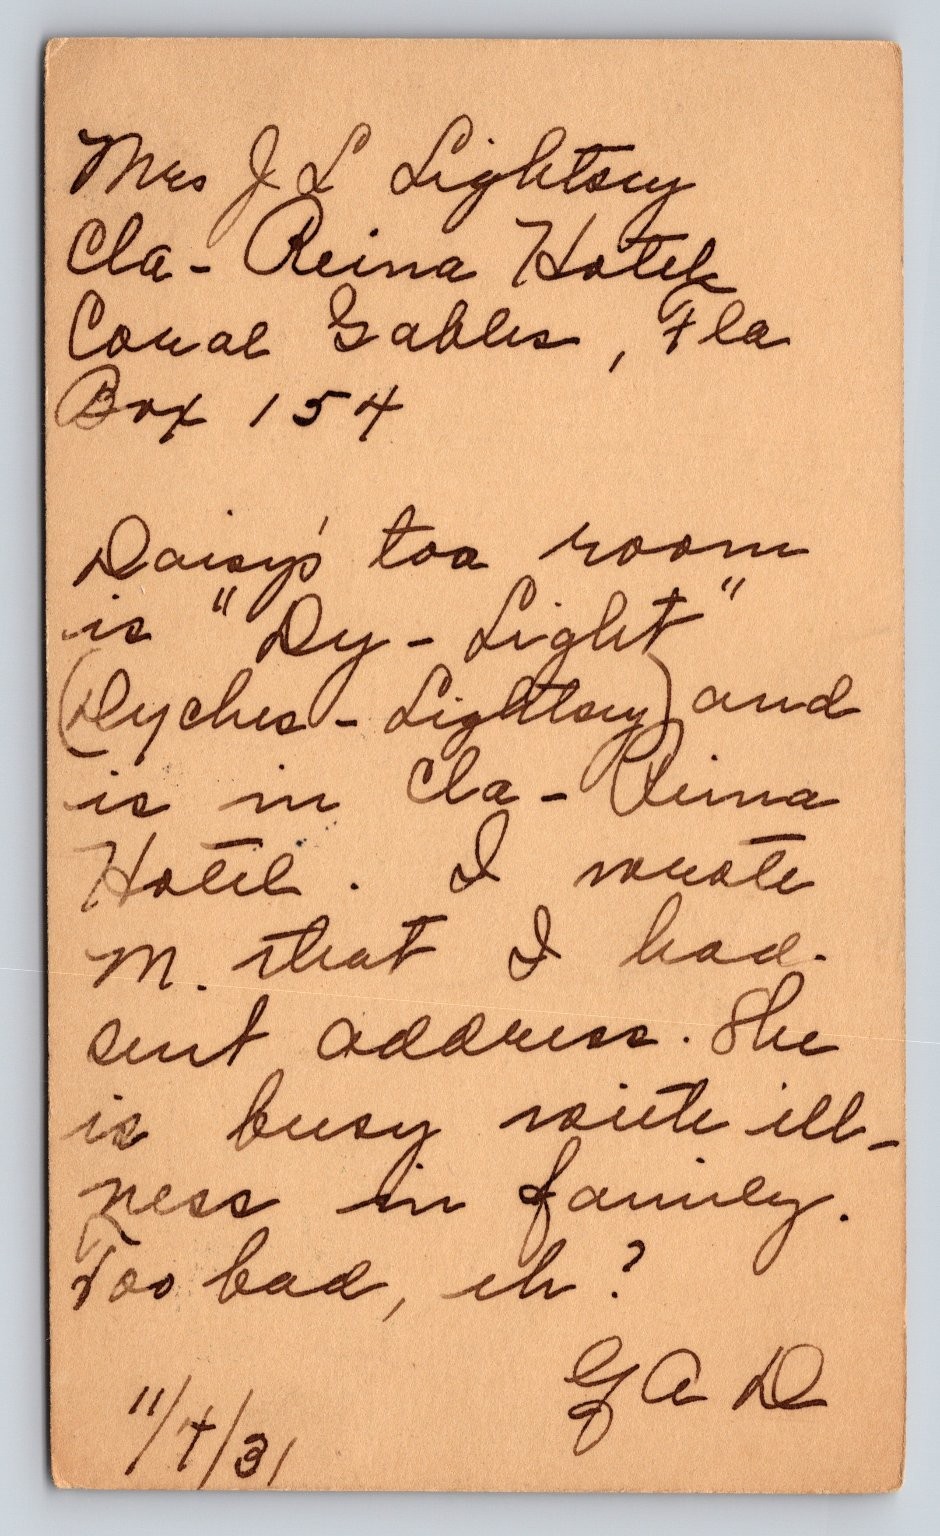 Mrs J L Lightsey
Cla-Reina Hotel
Coral Gables, Fla
Box 154
Daisy's tea room
is "Dy-Light"
(Dyches-Lightsey) and
is in Cla-Reina
Hotel. I wrote
M. that I had
sent address. She
is busy with ill-
ness in family.
Too bad, eh?
G A D
11/4/31